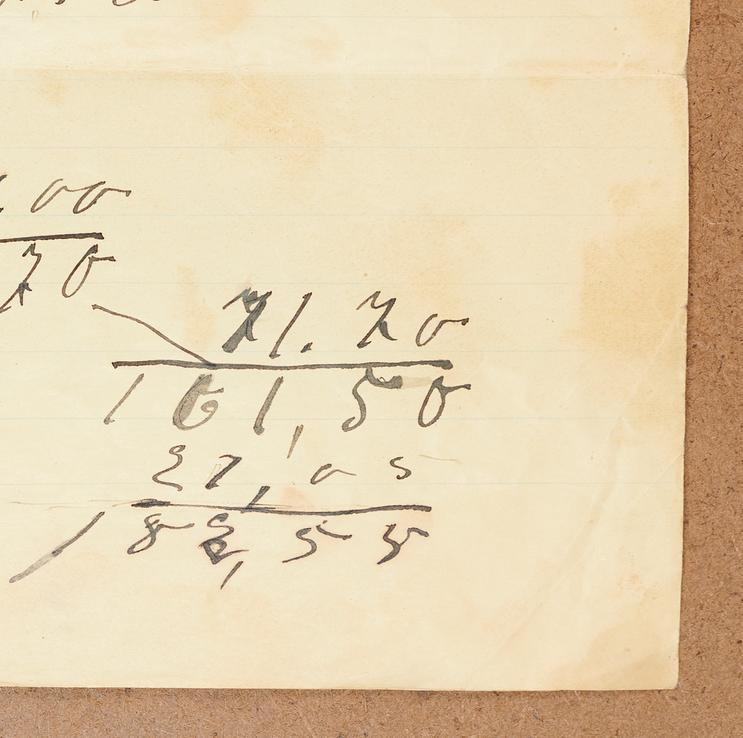 00
70
71.70
161,50
27,05
188,55